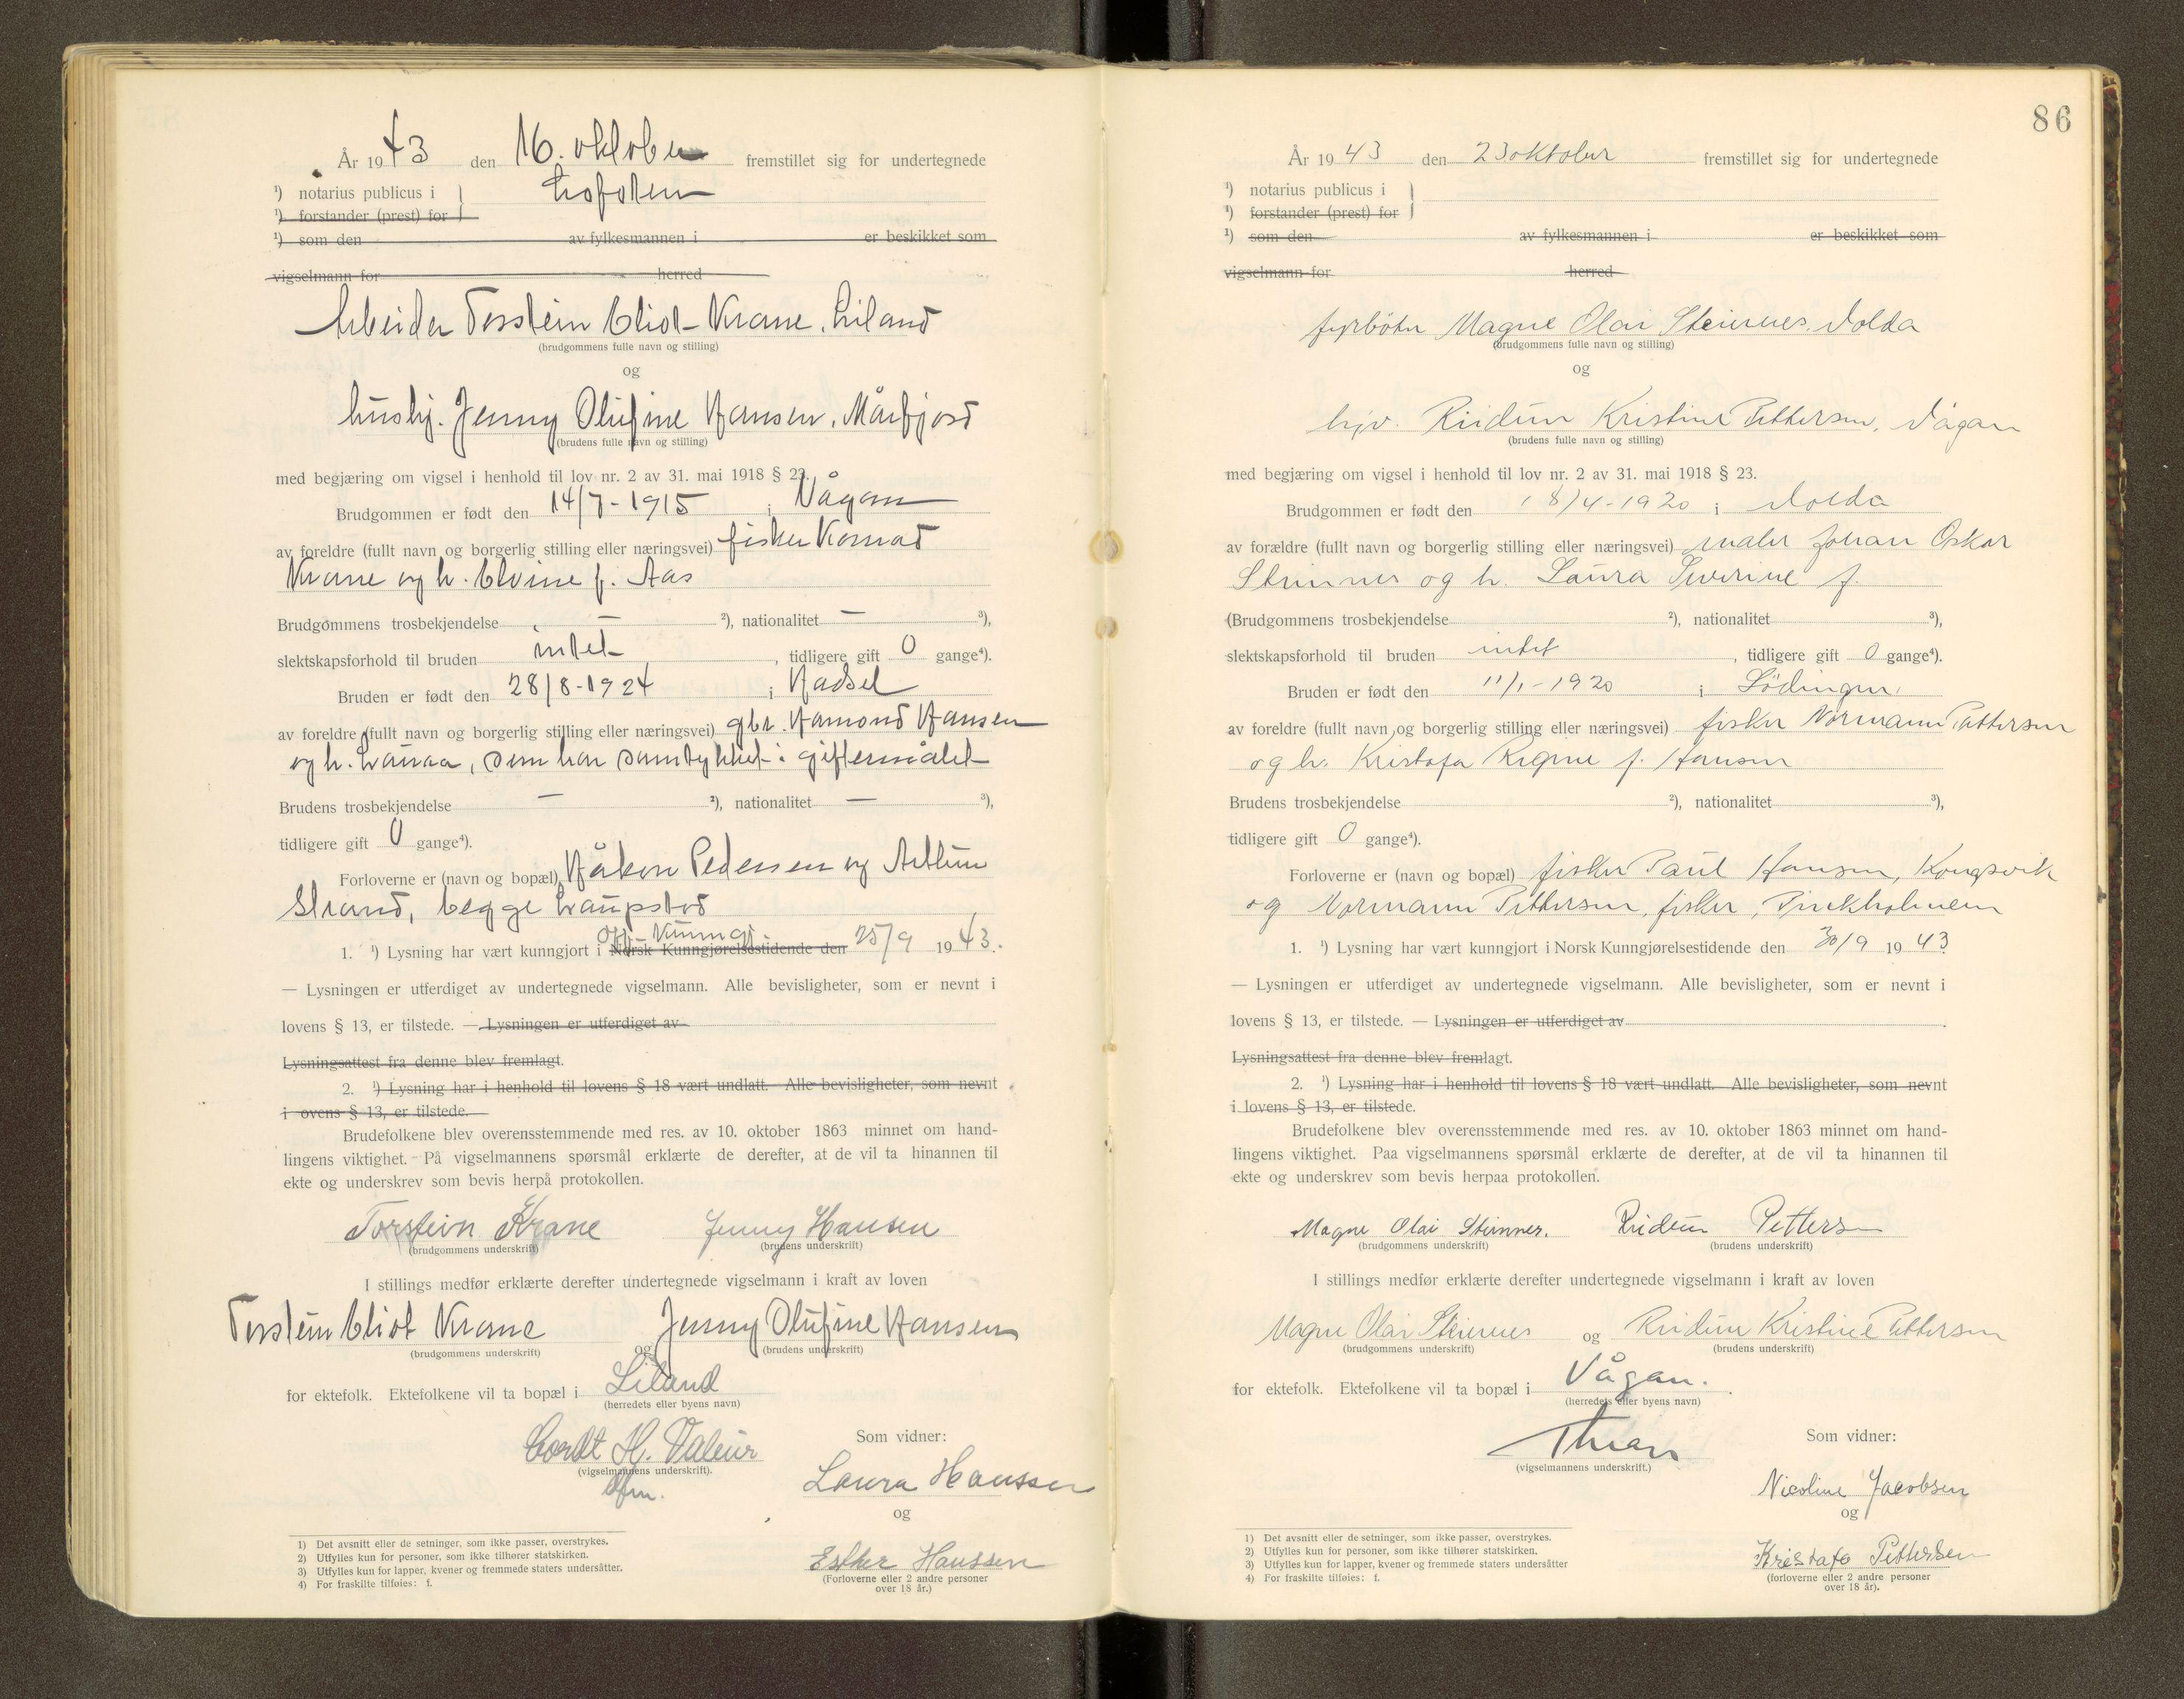 År 1943 den 16. oktober fremstillet sig for undertegnede
¹) notarius publicus i Lofoten
¹) forstander (prest) for
¹) som den av fylkesmannen i er beskikket som
vigselmann for herred
Arbeider Torstein Eliot Krane, Liland
(brudgommens fulle navn og stilling)
og
hushj. Jenny Olufine Hansen, Mårfjord
(brudens fulle navn og stilling)
med begjæring om vigsel i henhold til lov nr. 2 av 31. mai 1918 § 23.
Brudgommen er født den 14/7-1915 i Vågan
av foreldre (fullt navn og borgerlig stilling eller næringsvei) fisker Konrad
Krane og h. Elvine f. Aas
Brudgommens trosbekjendelse — ²), nationalitet — ³),
slektskapsforhold til bruden intet, tidligere gift 0 gange⁴).
Bruden er født den 28/8-1924 i Hadsel
av foreldre (fullt navn og borgerlig stilling eller næringsvei) gbr. Hamond Hansen
og h. Lauraa, som har samtykket i giftermålet
Brudens trosbekjendelse — ²), nationalitet — ³),
tidligere gift 0 gange⁴).
Forloverne er (navn og bopæl) Håkon Pedersen og Arthur
Strand, begge Laupstad
Off. Kunngj.
1. ¹) Lysning har vært kunngjort i Norsk Kunngjørelsestidende den 25/9 1943.
— Lysningen er utferdiget av undertegnede vigselmann. Alle bevisligheter, som er nevnt i
lovens § 13, er tilstede. — Lysningen er utferdiget av
Lysningsattest fra denne blev fremlagt.
2. ¹) Lysning har i henhold til lovens § 18 vært undlatt. Alle bevisligheter, som nevnt
i ovens § 13, er tilstede.
Brudefolkene blev overensstemmende med res. av 10. oktober 1863 minnet om hand-
lingens viktighet. På vigselmannens spørsmål erklærte de derefter, at de vil ta hinannen til
ekte og underskrev som bevis herpå protokollen.
Torstein Krane Jenny Hansen
(brudgommens underskrift) (brudens underskrift)
I stillings medfør erklærte derefter undertegnede vigselmann i kraft av loven
Torstein Eliot Krane og Jenny Olufine Hansen
(brudgommens underskrift) (brudens underskrift)
for ektefolk. Ektefolkene vil ta bopæl i Liland
(herredets eller byens navn)
Cordt H. Valeur
(vigselmannens underskrift).
Som vidner:
Laura Hanssen
og
Esther Hanssen
(Forloverne eller 2 andre personer
over 18 år.)
1) Det avsnitt eller de setninger, som ikke passer, overstrykes.
2) Utfylles kun for personer, som ikke tilhører statskirken.
3) Utfylles kun for lapper, kvener og fremmede staters undersåtter.
4) For fraskilte tilføies: f.
86
År 1943 den 23 oktober fremstillet sig for undertegnede
¹) notarius publicus i
¹) forstander (prest) for
¹) som den av fylkesmannen i er beskikket som
vigselmann for herred
fyrbøter Magne Olai Steinnes, Volda
(brudgommens fulle navn og stilling)
og
Ridun Kristine Pettersen, Vågan
(brudens fulle navn og stilling)
med begjæring om vigsel i henhold til lov nr. 2 av 31. mai 1918 § 23.
Brudgommen er født den 18/4-1920 i Volda
av forældre (fullt navn og borgerlig stilling eller næringsvei) maler Johan Oskar
Steinnes og h. Laura Severine f.
(Brudgommens trosbekjendelse ²), nationalitet ³),
slektskapsforhold til bruden intet, tidligere gift 0 gange⁴).
Bruden er født den 11/1-1920 i Lødingen
av foreldre (fullt navn og borgerlig stilling eller næringsvei) fisker Normann Pettersen
og h. Kristofa Regine f. Hansen
Brudens trosbekjendelse ²), nationalitet ³),
tidligere gift 0 gange⁴).
Forloverne er (navn og bopæl) fisker Paul Hansen, Kongsvik
og Normann Pettersen, fisker,
1. ¹) Lysning har vært kunngjort i Norsk Kunngjørelsestidende den 30/9 1943.
— Lysningen er utferdiget av undertegnede vigselmann. Alle bevisligheter, som er nevnt i
lovens § 13, er tilstede. — Lysningen er utferdiget av
Lysningsattest fra denne blev fremlagt.
2. ¹) Lysning har i henhold til lovens § 18 vært undlatt. Alle bevisligheter, som nevnt
i lovens § 13, er tilstede.
Brudefolkene blev overensstemmende med res. av 10. oktober 1863 minnet om hand-
lingens viktighet. Paa vigselmannens spørsmål erklærte de derefter, at de vil ta hinannen til
ekte og underskrev som bevis herpaa protokollen.
Magne Olai Steinnes. Ridun Petters
(brudgommens underskrift) (brudens underskrift)
I stillings medfør erklærte derefter undertegnede vigselmann i kraft av loven
Magne Olai Steinnes og Ridun Kristine Pettersen
(brudgommens underskrift) (brudens underskrift)
for ektefolk. Ektefolkene vil ta bopæl i Vågan.
(herredets eller byens navn)
(vigselmannens underskrift.)
Som vidner:
Nicoline Jacobsen
og
Kristofa Pettersen
(forloverne eller 2 andre personer
over 18 år).
1) Det avsnitt eller de setninger, som ikke passer, overstrykes.
2) Utfylles kun for personer, som ikke tilhører statskirken.
3) Utfylles kun for lapper, kvener og fremmede staters undersåtter
4) For fraskilte tilføies: f.